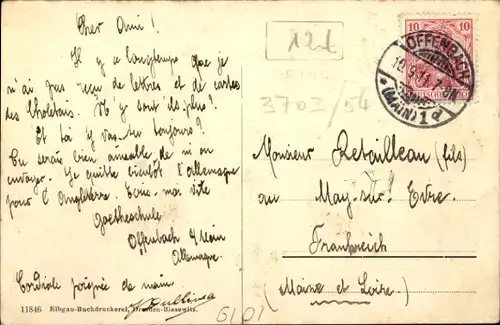 Cher Ami !
Il y a longtemps que je
n'ai pas reçu de lettres et de cartes
des Choletais. N'y sont-ils plus ?
Et toi y vas-tu toujours ?
Tu serais bien aimable de m'en
envoyer. Je quitte bientôt l'Allemagne
pour l'Angleterre. Ecris-moi vite
Goetheschule
Offenbach / Main
Allemagne.
Cordiale poignée de main
11846 Elbgau-Buchdruckerei, Dresden-Blasewitz.
12d
3703/54
10 10
OFFENBACH
(MAIN) 1 d
Monsieur Retailleau (fils)
au
May-sur-Evre.
Frankreich
(Maine et Loire)
6101